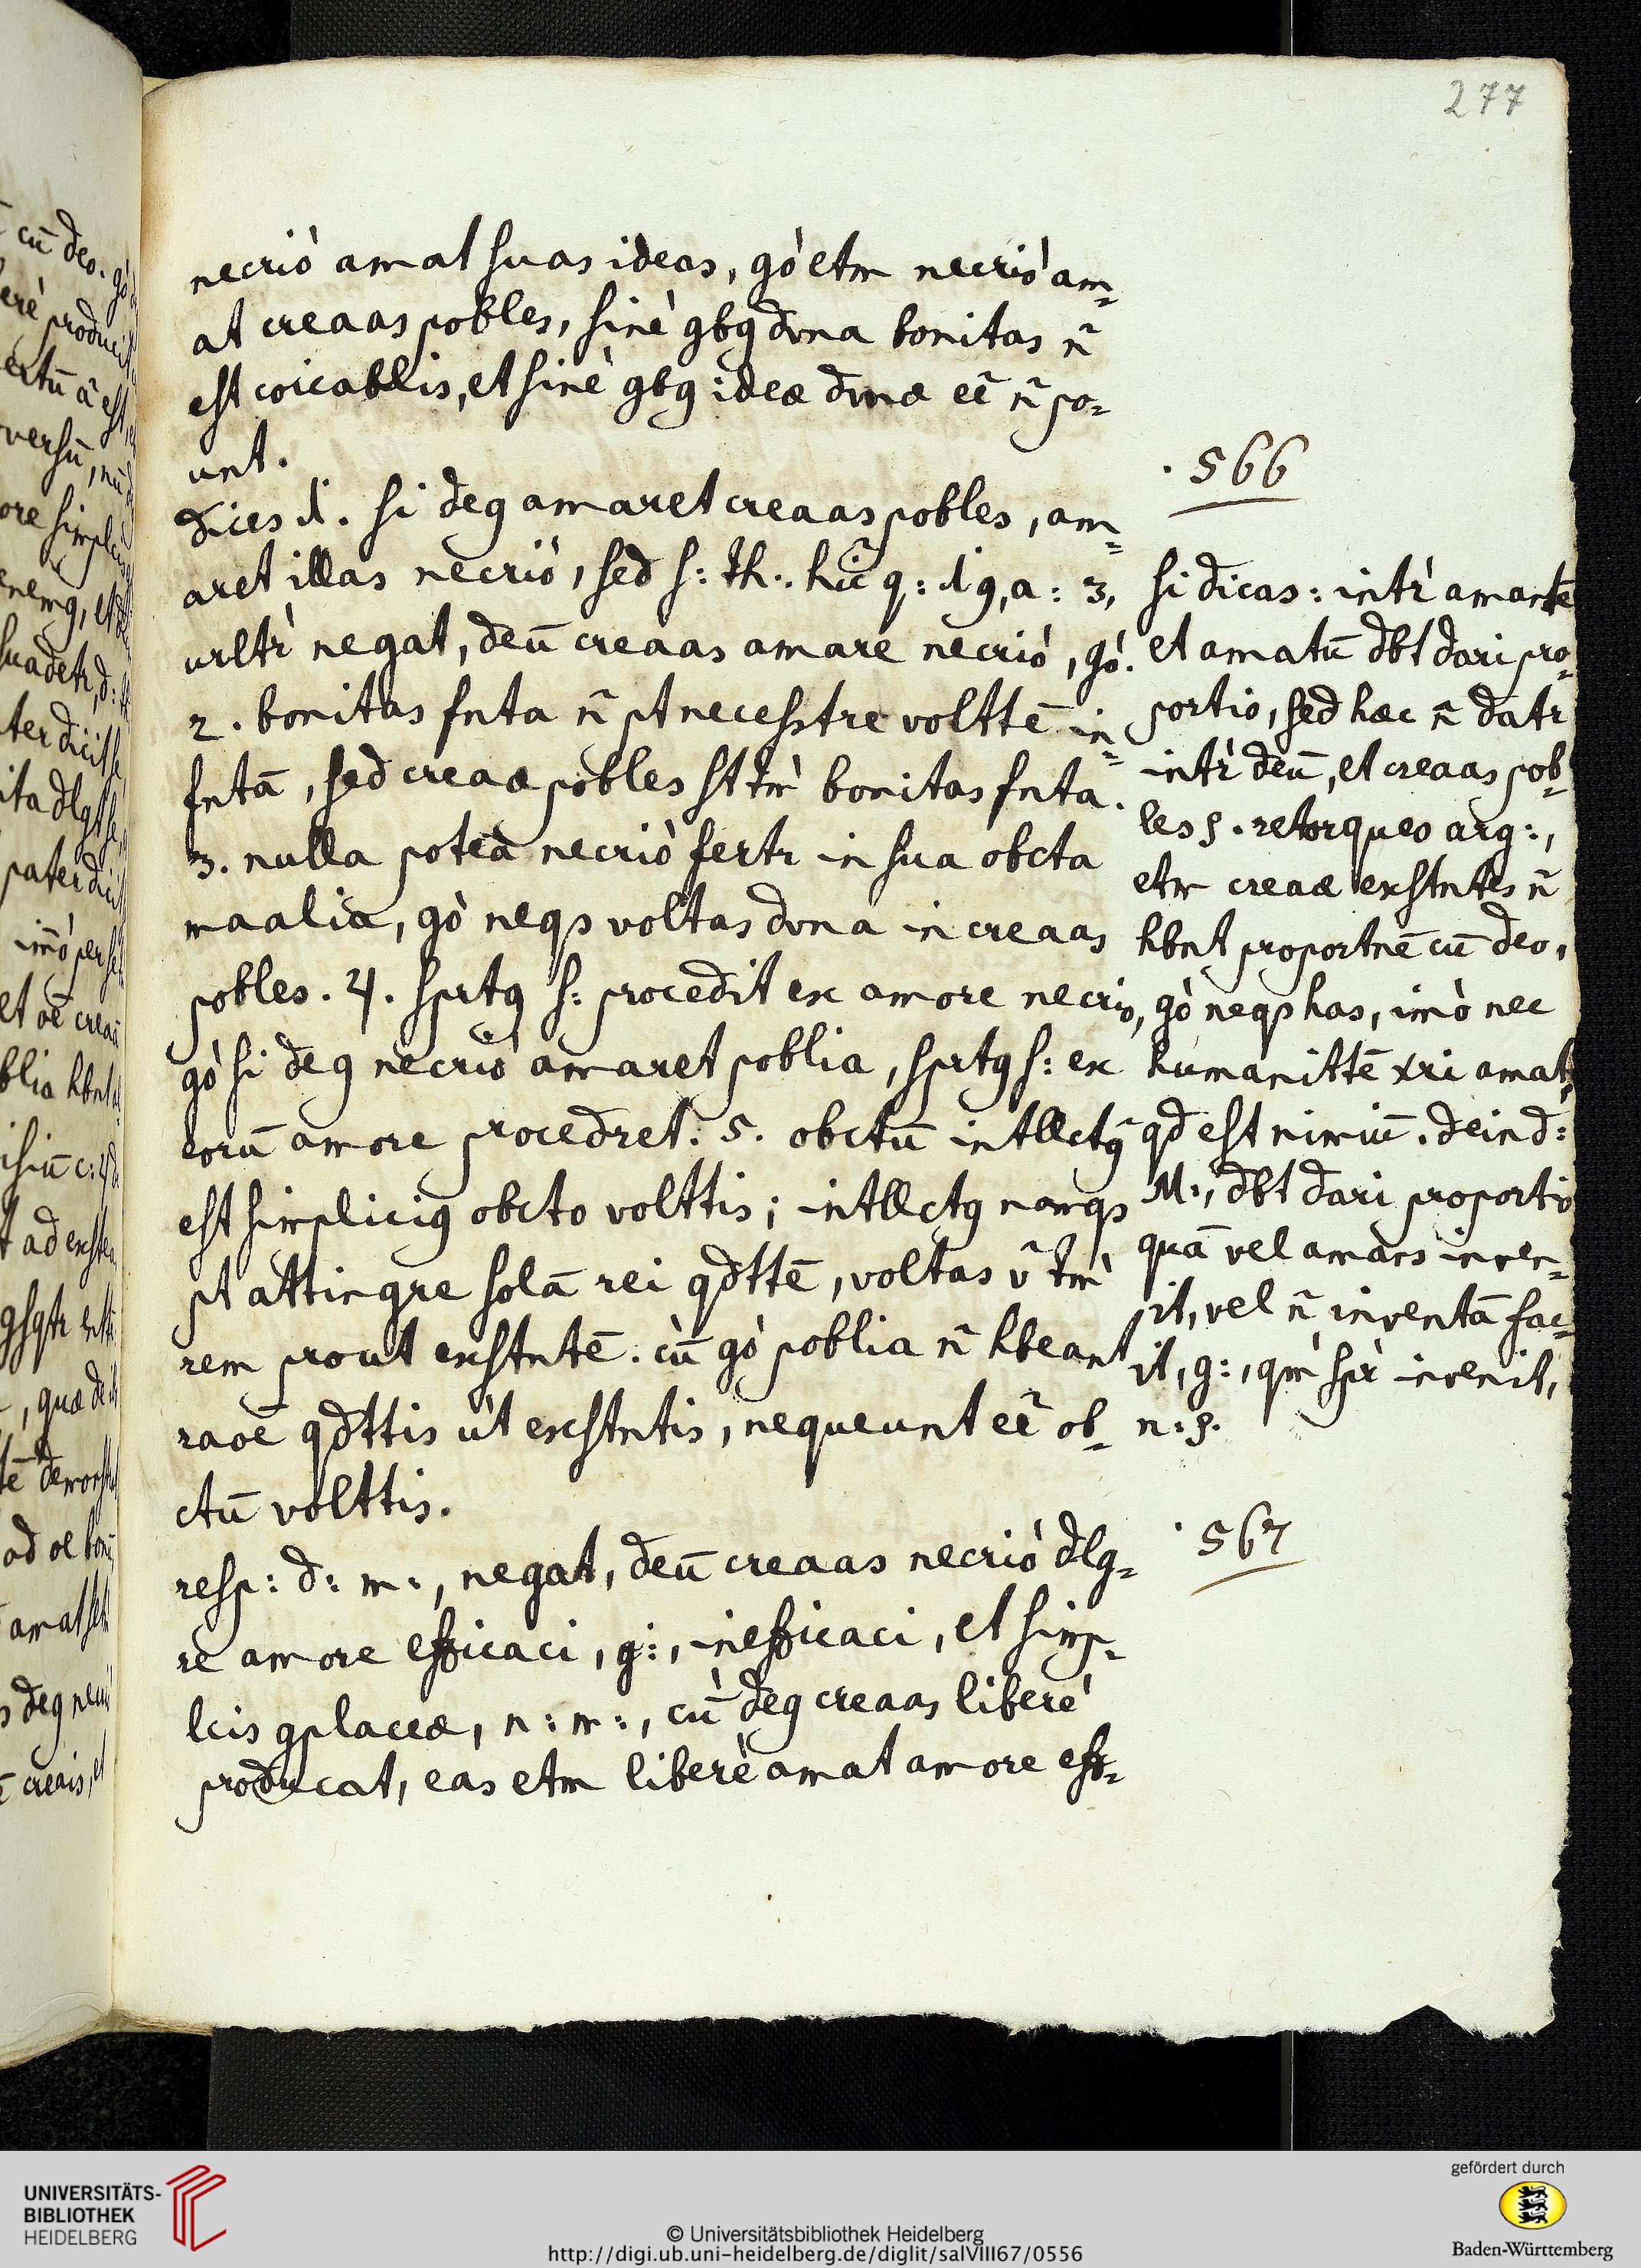 277
necriò amat suas ideas, gò etm necriò am=
at creaas pobles, sinè qbq dvna bonitas ñ
est coicablis, et sinè qbq ideæ dvnæ eẽ ñ po=
unt.
dices 1. si deq amaret creaas pobles, am=
aret illas necriò, sed s: th: hic q: 19, a: 3,
urltr̀ negat, deū creaas amare necriò, gò.
2. bonitas fnta ñ pt necesstre volttē in=
fntā, sed creaæ pobles st tm̀ bonitas fnta.
3. nulla potea necriò fertr in sua obcta
maalia, gò neqs voltas dvna in creaas
pobles. 4. sprtq s: procedit ex amore necrio,
gò si deq necriò amaret poblia, sprtq s: ex
eorū amore procedret. 5. obctū intllctq
est simpliciq obcto volttis; intllctq namqs
pt attingre solā rei qdttē, voltas ṽ tm̀
rem prout exstntē. cùm gò poblia ñ hbeant
raoē qdttis út exstntis, nequeunt eẽ ob=
ctū volttis.
resp: d: m:, negat, deū creaas necriò dlg=
re amore efficaci, g:, inefficaci, et simp=
lcis qplaceæ, n: m:, cū deq creaas liberè
producat, eas etm liberè amat amore eff=
. 566
si dicas: intr̀ amantē
et amatū dbt dari pro=
portio, sed hæc ñ datr
intr̀ deū, et creaas pob=
les §. retorqueo arg:,
etm creaæ exstntes ñ
hbnt proportnē cū deo,
gò neqs has, imò nec
humanittē xri amat,
qd est nimiū. deind:
M:, dbt dari proportio
quā vel amans inven=
it, vel ñ inventā fac=
it, g:, qm̀ spr̀ invenit,
n: §.
. 567
UNIVERSITÄTS-
BIBLIOTHEK
HEIDELBERG
© Universitätsbibliothek Heidelberg
http://digi.ub.uni-heidelberg.de/diglit/salVIII67/0556
gefördert durch
Baden-Württemberg